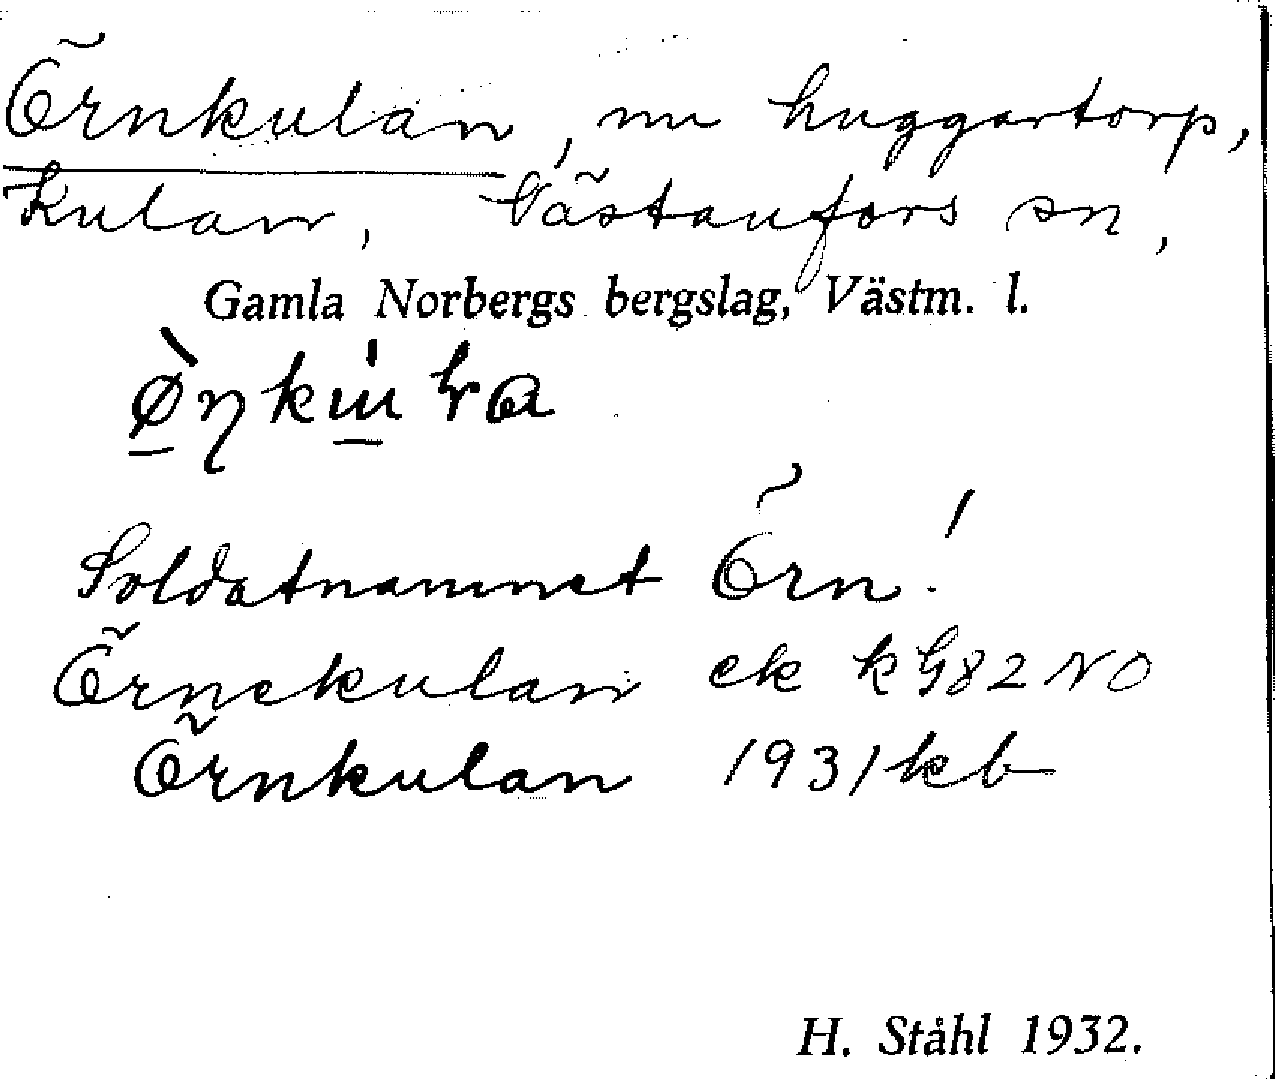 Örnkulan, nu huggartorp,
Kulan, Västanfors sn,
Gamla Norbergs bergslag, Västm. l.
Soldatnamnet Örn!
Örnekulan ek k G82 NO
Örnkulan 1931 kb
H. Ståhl 1932.